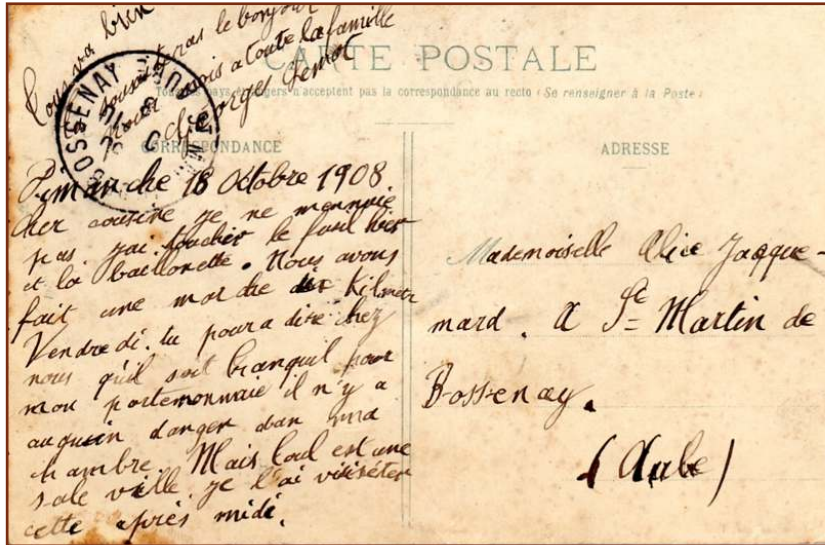 Tous va bien
tous tu souhaiteras le bonjour
pour mois a toute la famille
Georges
CARTE POSTALE
Tous les pays étrangers n'acceptent pas la correspondance au recto (Se renseigner à la Poste)
CORRESPONDANCE
ADRESSE
BOSSENAY
AUBE
Dimanche 18 Octobre 1908
Cher cousine je ne mennuie
pas. j'ai toucher le fusil hier
et la baillonette. Nous avons
fait une marche dix Kilometr
Vendredi. tu poura dire chez
nous qu'il soit tranquil pour
mon portemonnaie il n'y a
auquin danger dan ma
chambre. Mais Toul est une
sale ville je l'ai visiteter
cette après midi.
Mademoiselle Alice Jacque-
mard. A St Martin de
Bossenay.
(Aube)